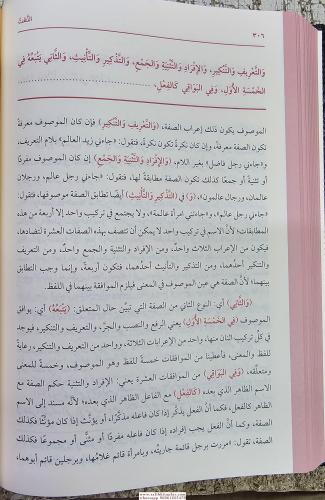 النَّعْتُ
٣٠٦
وَالتَّعْرِيفِ وَالتَّنْكِيرِ، وَالإِفْرَادِ وَالتَّثْنِيَةِ وَالجَمْعِ، وَالتَّذْكِيرِ وَالتَّأْنِيثِ، وَالثَّانِي يَتْبَعُهُ فِي
الخَمْسَةِ الأُوَلِ، وَفِي البَوَاقِي كَالفِعْلِ،
الموصوف يكون ذلك إعراب الصفة، (وَالتَّعْرِيفِ وَالتَّنْكِيرِ) فإن كان الموصوف معرفةً
تكون الصفة معرفةً، وإن كان نكرةً تكون نكرةً، فتقول: «جاءني زيد العالم» بلام التعريف،
و«جاءني رجل فاضل» بغير اللام، (وَالإِفْرَادِ وَالتَّثْنِيَةِ وَالجَمْعِ) إن كان الموصوف مفردًا
أو تثنيةً أو جمعًا كذلك تكون الصفة مطابقةً لها، فتقول: «جاءني رجل عالم، ورجلان
عالمان، ورجال عالمون»، (وَ) في (التَّذْكِيرِ وَالتَّأْنِيثِ) أيضًا تطابق الصفة موصوفها، فتقول:
«جاءني رجل عالم»، و«جاءتني امرأة عالمة»، ولا يجتمع في تركيب واحد إلا أربعة من هذه
المطابقات؛ لأنَّ الاسم في تركيب واحد لا يمكن أن تتصف بهذه الصفات العشرة لتضادها،
فيكون من الإعراب الثلاث واحدٌ، ومن الإفراد والتثنية والجمع واحدٌ، ومن التعريف
والتنكير أحدُهما، ومن التذكير والتأنيث أحدُهما، فتكون أربعةً، وإنما وجب التطابق
بينهما لأنَّ الصفة هي عين الموصوف في المعنى فيلزم الموافقة بينهما في اللفظ.
(وَالثَّانِي) أي: النوع الثاني من الصفة التي تبيِّن حال المتعلق: (يَتْبَعُهُ) أي: يوافق
الموصوف (فِي الخَمْسَةِ الأُوَلِ) يعني الرفع والنصب والجرّ، والتعريف والتنكير، فيوجد
في كلِّ تركيب اثنان منها، واحد من الإعرابات الثلاثة، وواحد من التعريف والتنكير، رعايةً
للفظ والمعنى، فأعطينا من الموافقات خمسةً للفظ وهو الموصوف، وخمسةً للمعنى
ومتعلّقه، (وَفِي البَوَاقِي) من الموافقات العشرة يعني: الإفراد والتثنية حكم الصفة مع
الاسم الظاهر الذي بعده (كَالفِعْلِ) مع الفاعل الظاهر الذي بعده؛ لأنّه مسند إلى الاسم
الظاهر كالفعل، فكما أنّ الفعل يذكَّر إذا كان فاعله مذكّرًا، أو يؤنَّث إذا كان مؤنّثًا فكذلك
الصفة، وكما أنّ الفعل يجب إفراده إذا كان فاعله مفردًا أو مثنًّى أو مجموعًا فكذلك
الصفة، تقول: «مررت برجل قائمة جاريته، وبامرأة قائم غلامُها، وبرجلين قائم أبوهما،